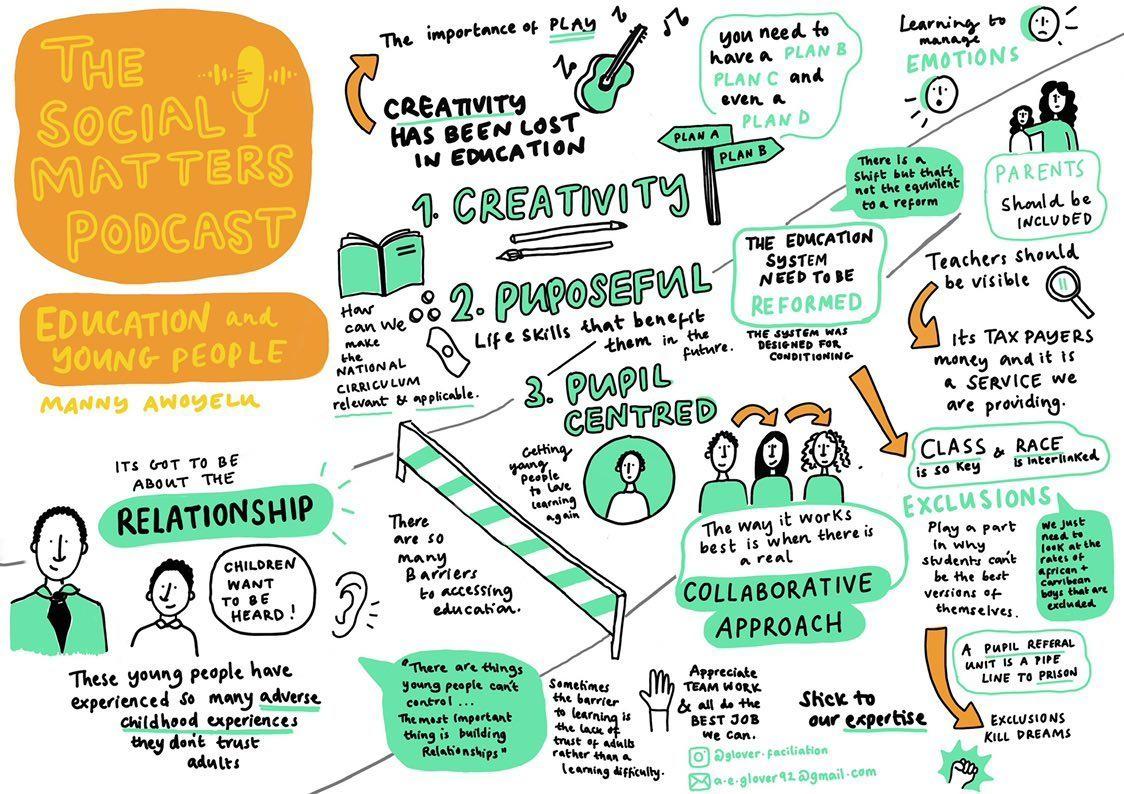 THE
SOCIAL
MATTERS
PODCAST
EDUCATION and
YOUNG PEOPLE
MANNY AWOYELU
The importance of PLAY
CREATIVITY
HAS BEEN LOST
IN EDUCATION
you need to
have a PLAN B
PLAN C and
even a
PLAN D
PLAN A
PLAN B
Learning to
manage
EMOTIONS
1. CREATIVITY
2. PUPOSEFUL
Life skills that benefit
them in the
future.
How
can we
make
the
NATIONAL
CIRRICULUM
relevant & applicable.
3. PUPIL
CENTRED
Getting
young
people
to love
learning
again
There is a
shift but that's
not the equivilent
to a reform
THE EDUCATION
SYSTEM
NEED TO BE
REFORMED
THE SYSTEM WAS
DESIGNED FOR
CONDITIONING
PARENTS
should be
INCLUDED
Teachers should
be visible
its TAX PAYERS
money and it is
a SERVICE we
are providing.
CLASS & RACE
is so key
is interlinked
EXCLUSIONS
Play a part
in why
students can't
be the best
versions of
themselves.
we just
need to
look at the
rates of
african +
carribean
boys that are
excluded
A PUPIL REFERAL
UNIT IS A PIPE
LINE TO PRISON
EXCLUSIONS
KILL DREAMS
ITS GOT TO BE
ABOUT THE
RELATIONSHIP
CHILDREN
WANT
TO BE
HEARD!
These young people have
experienced so many adverse
childhood experiences
they don't trust
adults
There
are so
many
Barriers
to accessing
education.
The way it works
best is when there is
a real
COLLABORATIVE
APPROACH
"There are things
young people can't
control ...
The most important
thing is building
Relationships"
Sometimes
the barrier
to learning is
the lack of
trust of adults
rather than a
learning difficulty.
Appreciate
TEAM WORK
& all do the
BEST JOB
we can.
Stick to
our expertise
@glover.faciliation
a.e.glover92@gmail.com